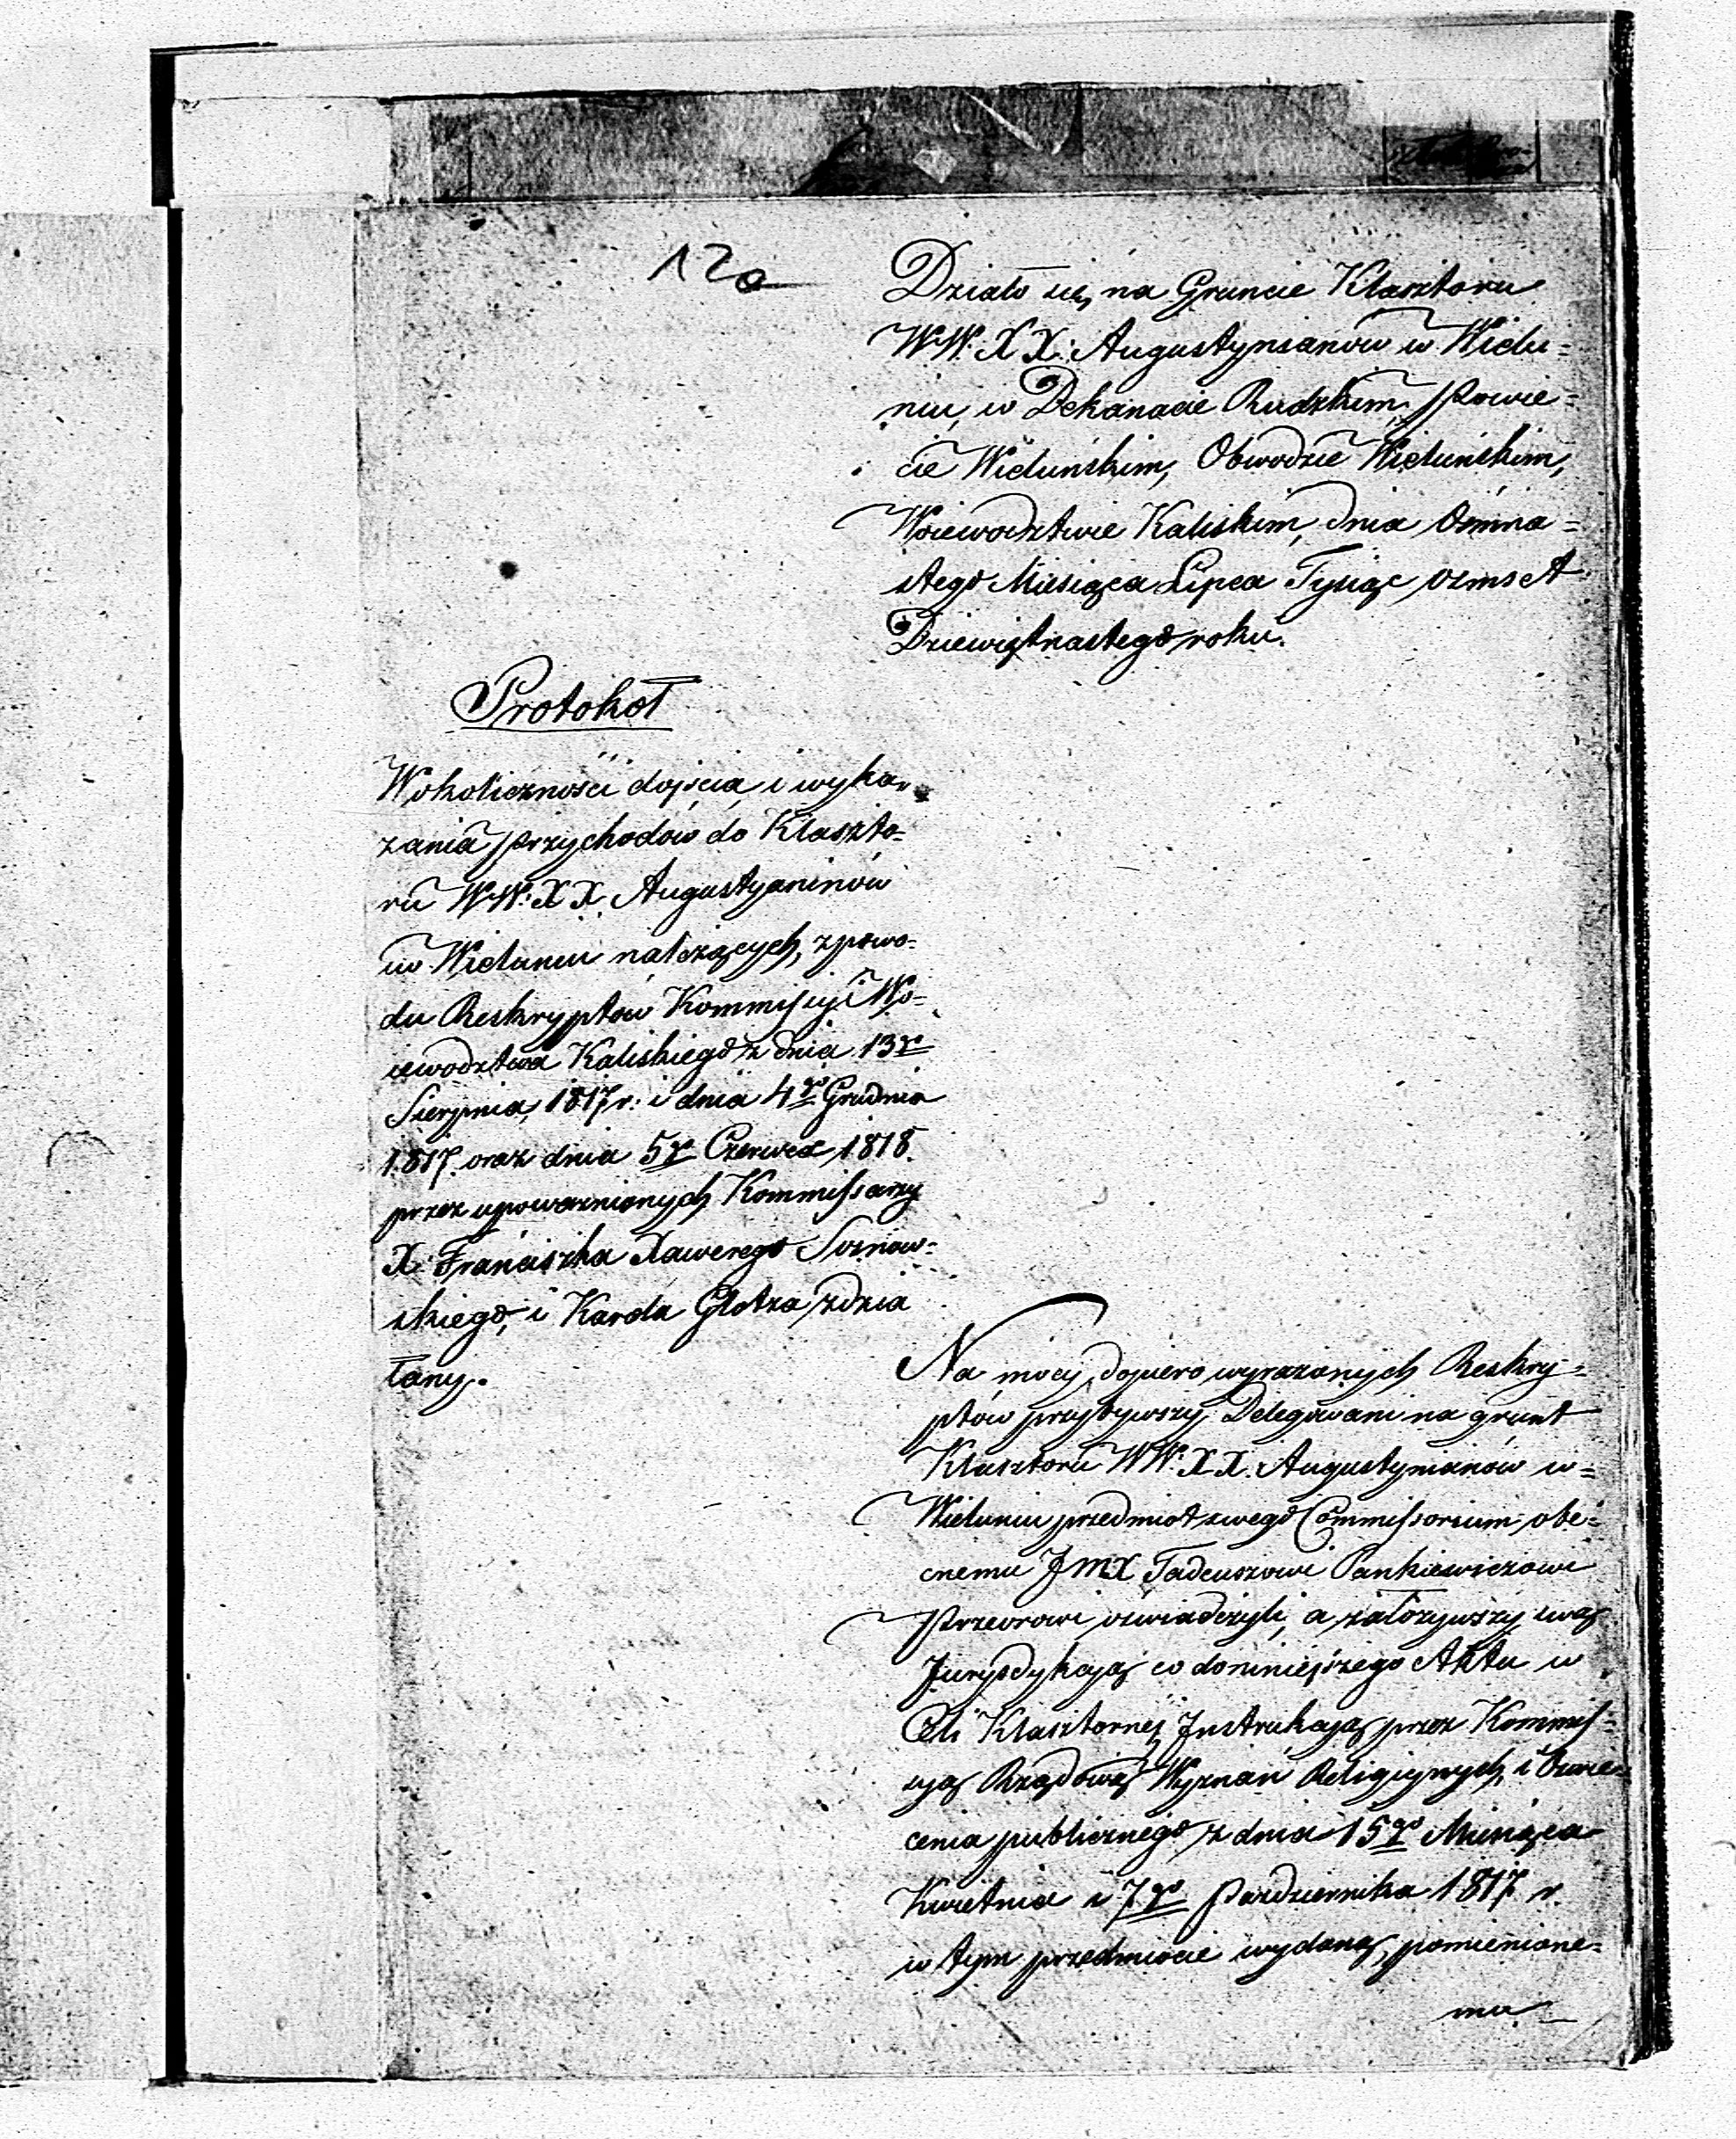 12
Działo się na Gruncie Klasztoru
WW: XX: Augustynianów w Wielu=
niu, w Dekanacie Rudzkim, Powie=
cie Wieluńskim, Obwodzie Wieluńskim,
Woiewodztwie Kaliskim, dnia Osmna=
stego Miesiąca Lipca Tysiąc osmset
Dziewiętnastego roku.
Protokoł
W okoliczności dojścia i wyka=
zania przychodów do Klaszto=
ru WW: XX. Augustyaninów
w Wieluniu należących, z powo=
du Reskryptów Kommissyi Wo=
iewodztwa Kaliskiego z dnia 13go
Sierpnia 1817 r: i dnia 4go Grudnia
1817. oraz dnia 5go Czerwca 1818.
przez upoważnionych Kommissarzy
X: Franciszka Xawerego Sosnow=
skiego, i Karola Glotza zdzia
łany.
Na mocy dopiero wyrażonych Reskry=
ptów przybywszy Delegowani na grunt
Klasztoru WW: XX. Augustynianów w=
Wieluniu przedmiot swego Commissorium obe=
cnemu JMX Tadeuszowi Pankiewiczowi
Przeorowi oświadczyli, a założywszy swą
Jurysdykcyą co do niniejszego Aktu w
Celi Klasztorney Instrukcyą przez Kommis=
syą Rządową Wyznań Religijnych i Oswie=
cenia publicznego z dnia 15go Miesiąca
Kwietnia i 7go Października 1817 r
w tym przedmiocie wydaną, pomienione=
mu